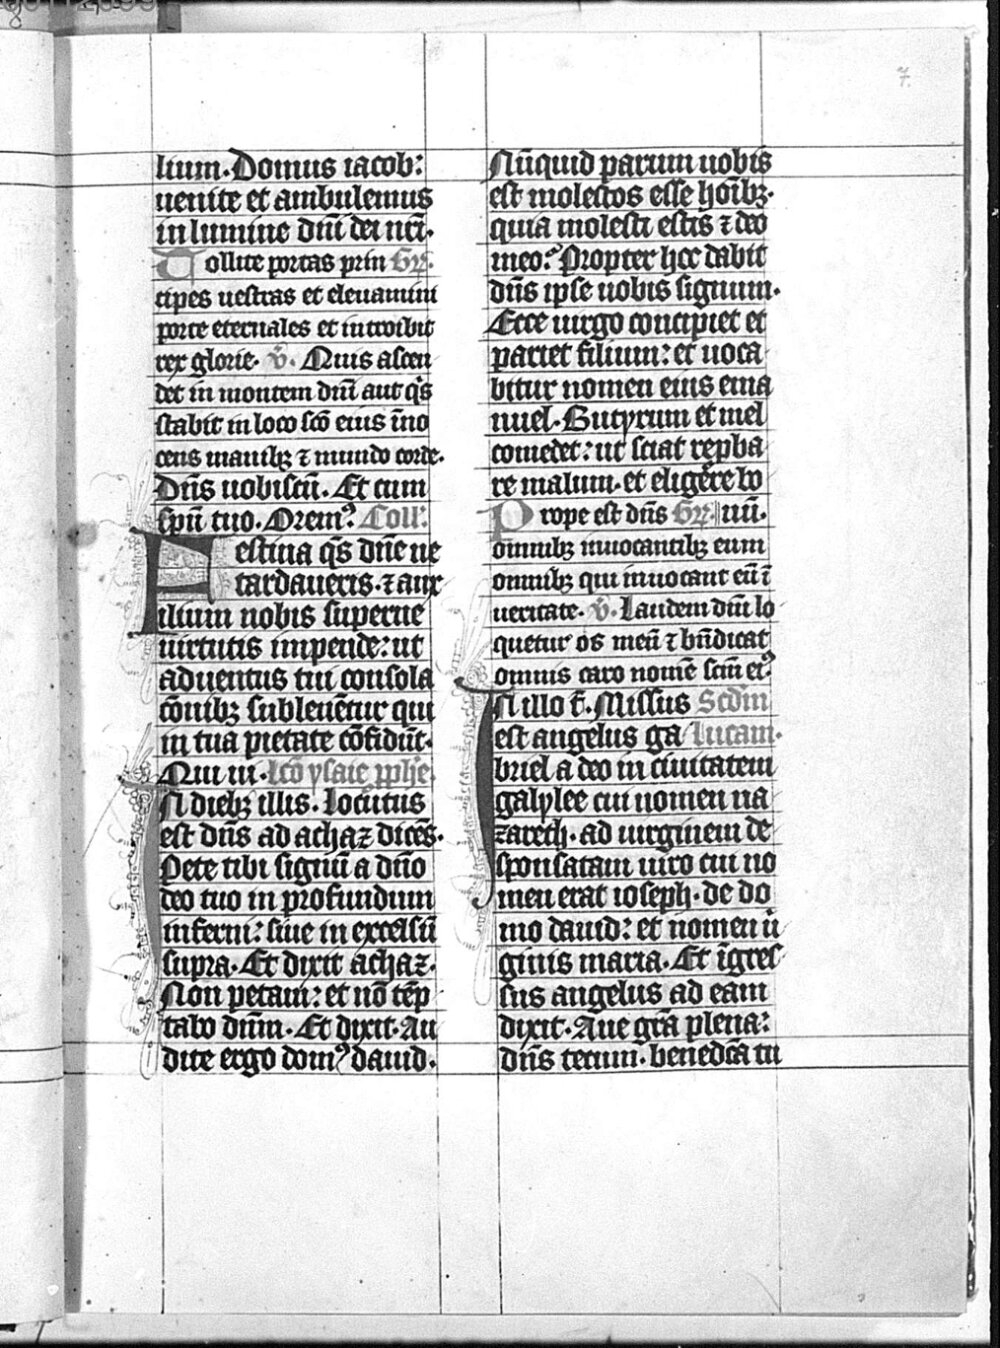 7
lium. Domus iacob:
uenite et ambulemus
in lumine dñi dei nr̃i.
Tollite portas prin Gr̃.
cipes uestras et eleuamini
porte eternales et introibit
rex glorie. v̄. Quis ascen
det in montem dñi aut q̇s
stabit in loco sc̄o eius īno
cens manibꝫ ⁊ mundo corde.
Dñs uobiscū. Et cum
spū tuo. Oremꝰ. Coll̄.
Festina q̄s dñe ne
tardaueris. ⁊ aux
ilium nobis superne
uirtutis impende: ut
aduentus tui consola
cōnibꝫ subleuētur qui
in tua pietate cōfidūt.
Qui ui. Lcō ysaie ꝓphe.
In diebꝫ illis. Locutus
est dñs ad achaz dicēs.
Pete tibi signū a dño
deo tuo in profundum
inferni: siue in excelsū
supra. Et dixit achaz.
Non petam: et nō tēp
tabo dñm. Et dixit. Au
dite ergo domꝰ dauid.
Nūquid parum uobis
est molestos esse hoībꝫ.
quia molesti estis ⁊ deo
meo? Propter hoc dabit
dñs ipse uobis signum.
Ecce uirgo concipiet et
pariet filium: et uoca
bitur nomen eius ema
nuel. Butyrum et mel
comedet: ut sciat reproba
re malum. et eligere bo
Prope est dñs Gr̃. nū.
omnibꝫ inuocantibꝫ eum
omnibꝫ qui inuocant eū ī
ueritate. v̄. Laudem dñi lo
quetur os meū ⁊ bñdicat
omnis caro nomē scm̄ eiꝰ.
In illo t̄. Missus Scdm̄
est angelus ga Lucam.
briel a deo in ciuitatem
galylee cui nomen na
zareth. ad uirginem de
sponsatam uiro cui no
men erat ioseph. de do
mo dauid: et nomen ù
ginis maria. Et īgres
sus angelus ad eam
dixit. Aue gr̄a plena:
dñs tecum. benedc̄a tu